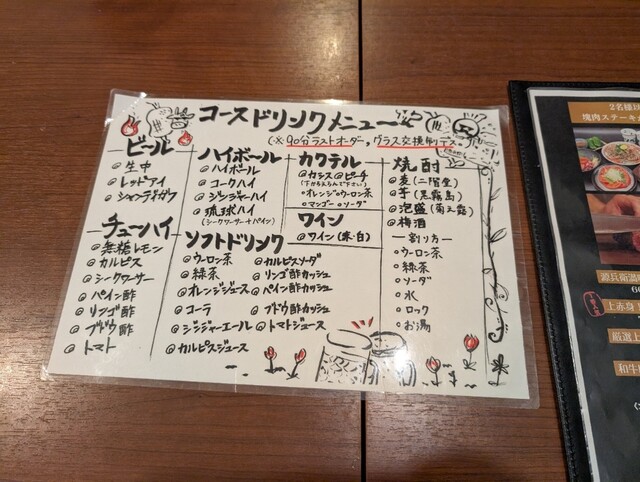 コースドリンクメニュー
(※90分ラストオーダー,グラス交換制デス
ビール
@生中
@レッドアイ
@シャンディガフ
チューハイ
@無糖レモン
@カルピス
@シークワーサー
@パイン酢
@リンゴ酢
@ブドウ酢
@トマト
ハイボール
@ハイボール
@コークハイ
@ジンジャーハイ
@琉球ハイ
(シークワーサー+パイン)
カクテル
@カシス@ピーチ
(下からえらんで下さい)
・オレンジ・ウーロン茶
・マンゴー・ソーダ
ワイン
@ワイン(赤・白)
ソフトドリンク
@ウーロン茶
@緑茶
@オレンジジュース
@コーラ
@ジンジャーエール
@カルピスジュース
@カルピスソーダ
@リンゴ酢カッシュ
@パイン酢カッシュ
@ブドウ酢カッシュ
@トマトジュース
焼酎
@麦(二階堂)
@芋(黒霧島)
@泡盛(菊之露)
@梅酒
ー割り方ー
・ウーロン茶
・緑茶
・ソーダ
・水
・ロック
・お湯
2名様以
塊肉ステーキ
源兵衛
上赤身
厳選上
和牛